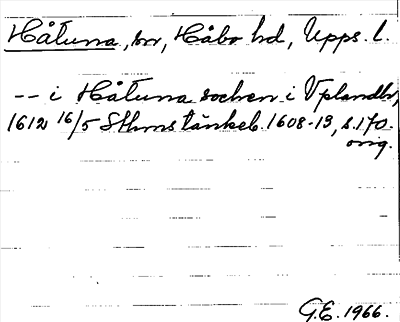 Håtuna, sn, Håbo hd, Upps. l.
-- i Håtuna sochen i Vplandh,
1612 16/5 Sthms tänkeb. 1608-13, s. 170.
orig.
G.E. 1966.